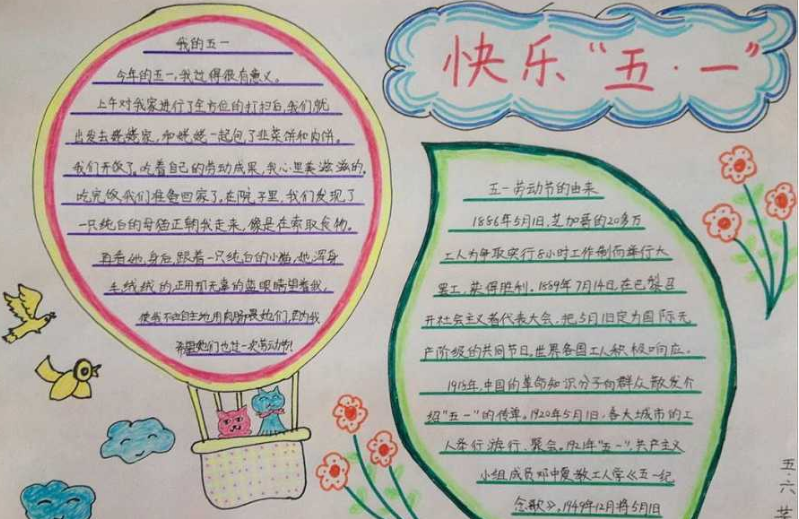 快乐“五·一”
我的五一
今年的五一,我过得很有意义。
上午对我家进行了全方位的打扫后,我们就
出发去姥姥家,和姥姥一起包了韭菜饼和肉饼。
我们开饭了。吃着自己的劳动成果,我心里美滋滋的。
吃完饭我们准备回家了。在院子里,我们发现了
一只纯白的母猫正朝我走来,像是在索取食物。
再看她,身后,跟着一只纯白的小猫,她浑身
毛绒绒的正用那无辜的蓝眼睛望着我,
使我不由自主地用肉肠喂她们,因为我
希望她们也过一次劳动节!
五一劳动节的由来
1886年5月1日,芝加哥的20多万
工人为争取实行8小时工作制而举行大
罢工,获得胜利。1889年7月14日,在巴黎召
开社会主义者代表大会,把5月1日定为国际无
产阶级的共同节日。世界各国工人积极响应。
1918年,中国的革命知识分子向群众散发介
绍“五一”的传单。1920年5月1日,各大城市的工
人举行游行、聚会。1921年“五一”,共产主义
小组成员邓中夏教工人学《五一纪
念歌》。1949年12月将5月1日
五·六